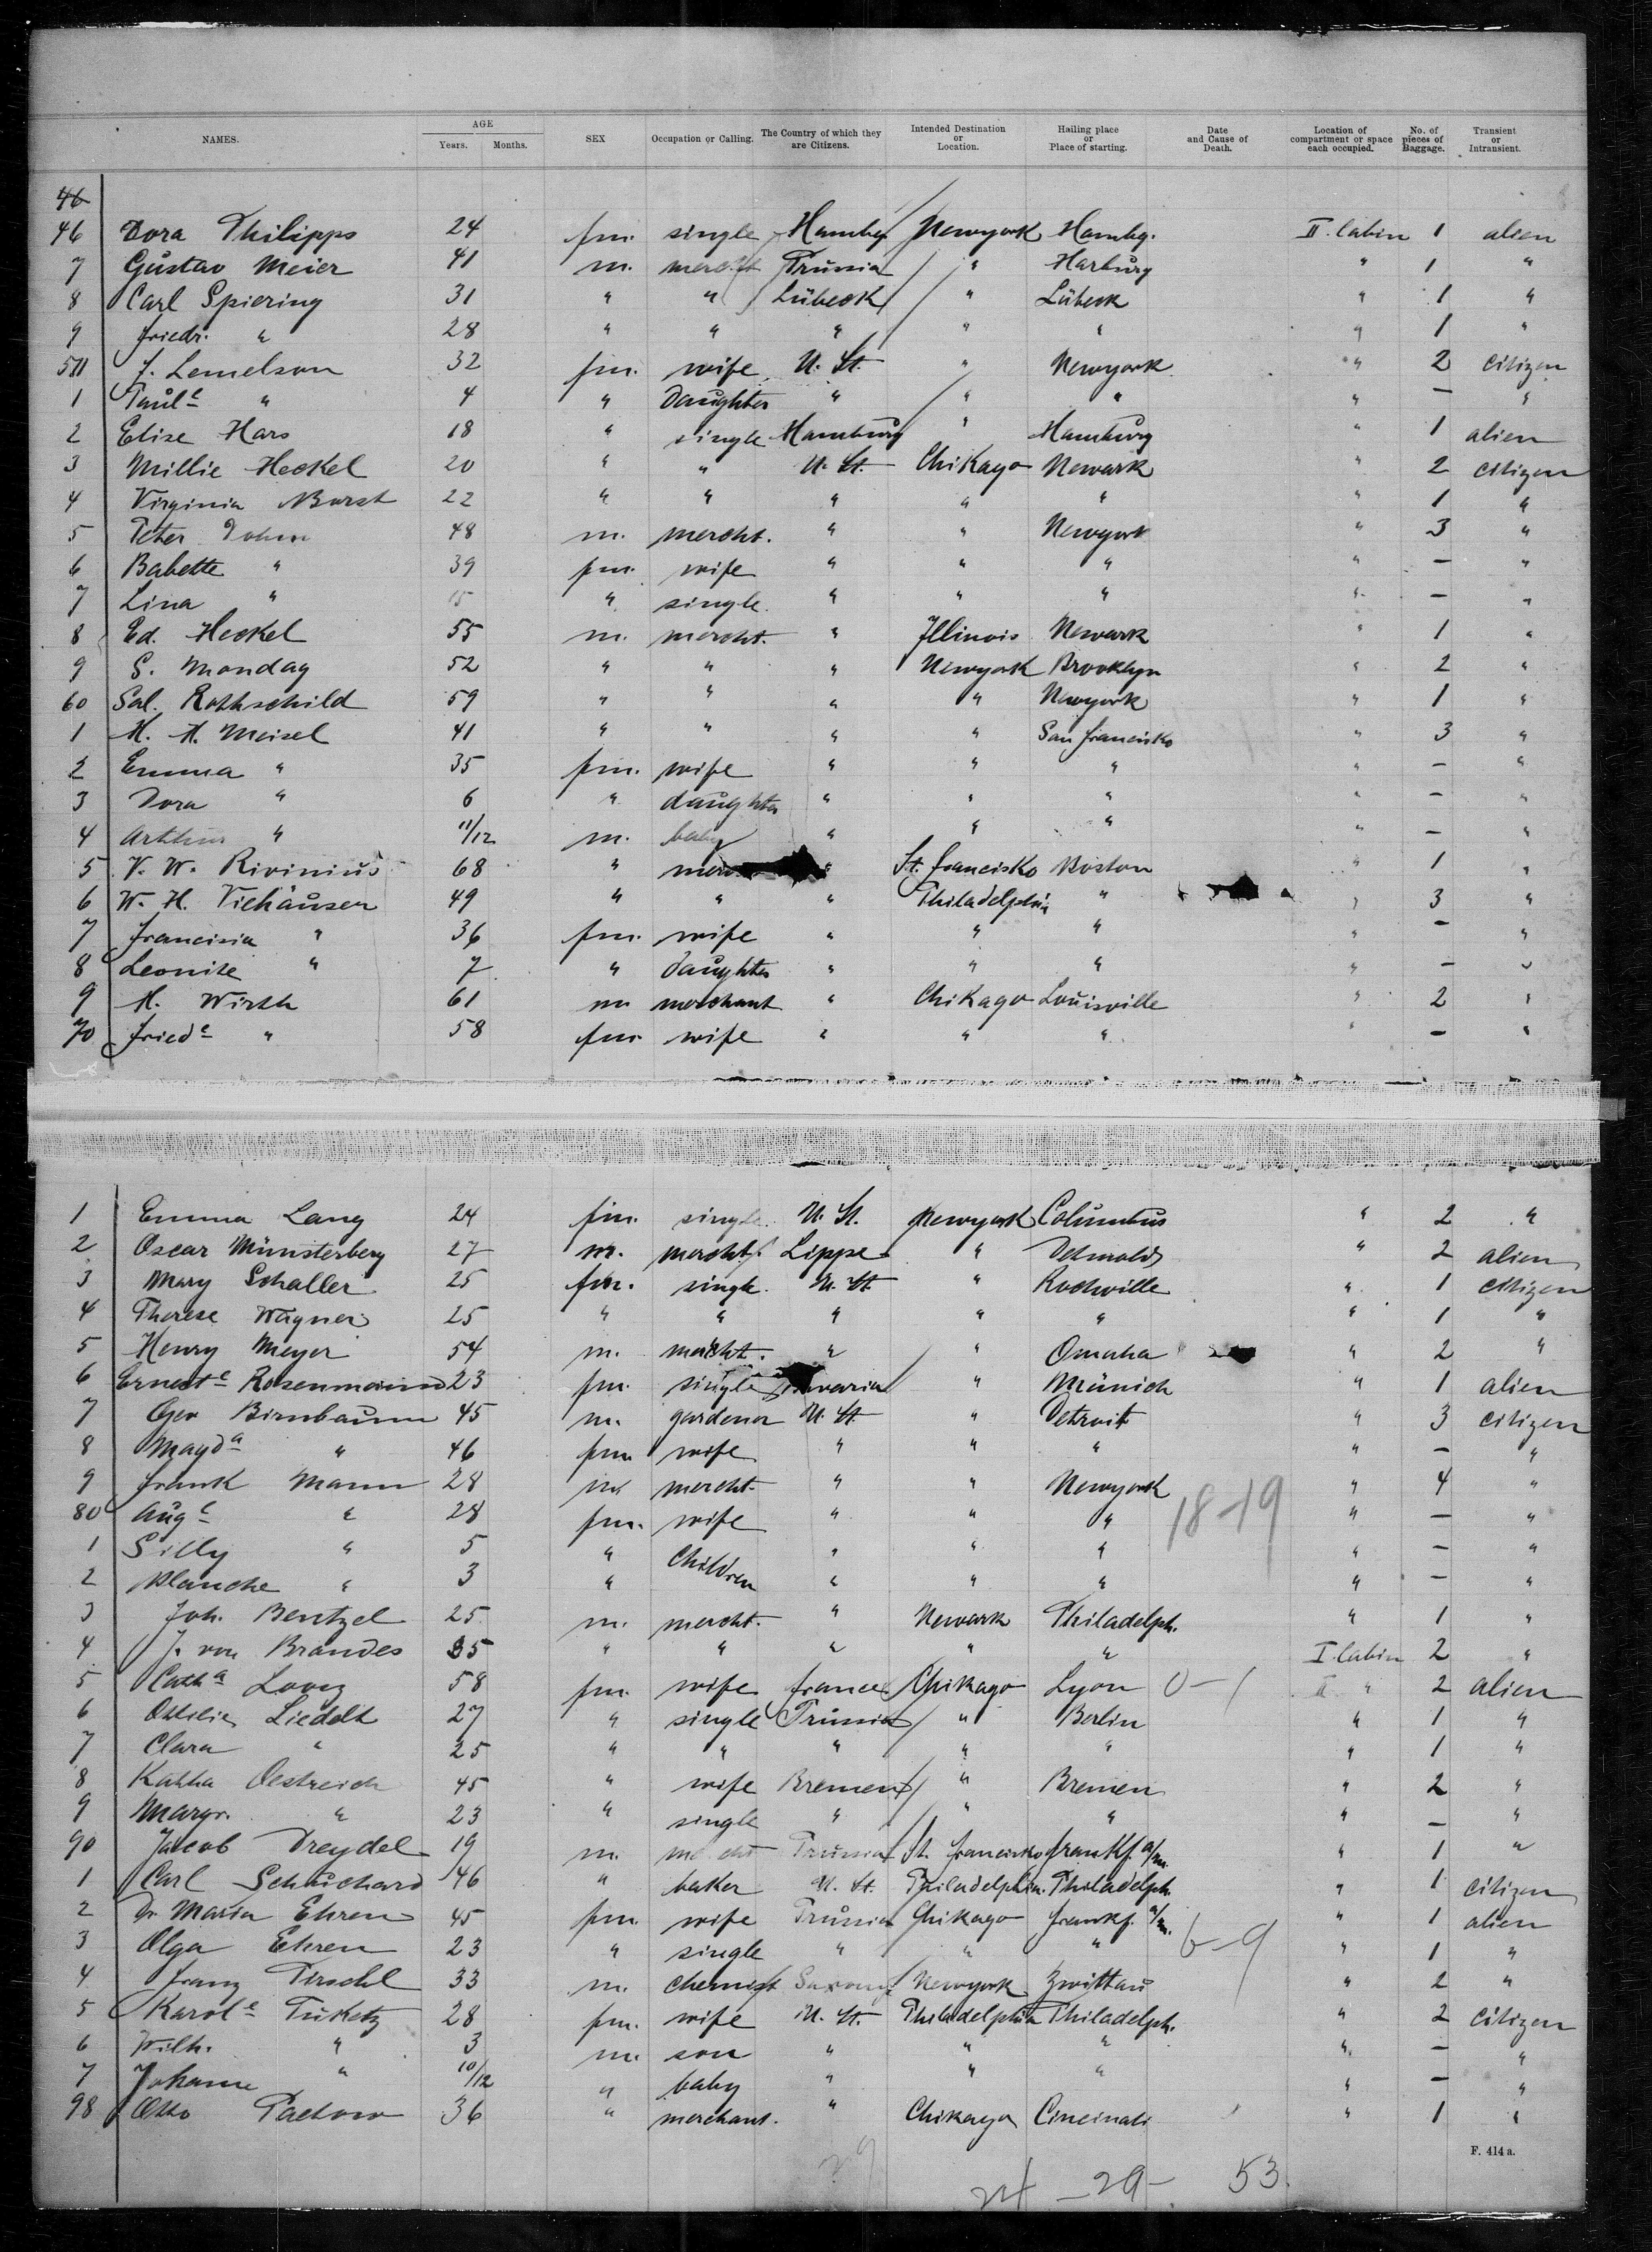 NAMES. AGE Years. Months. SEX Occupation or Calling. The Country of which they are Citizens. Intended Destination or Location. Hailing place or Place of starting. Date and Cause of Death. Location of compartment or space each occupied. No. of pieces of Baggage. Transient or Intransient.
46
46 Dora Philipps 24 fm. single Hambg Newyork Hambg. II. Cabin 1 alien
7 Gustav Meier 41 m. mercht Prussia " Harburg " 1 "
8 Carl Spiering 31 " " Lübeck " Lübeck " 1 "
9 Friedr. " 28 " " " " " " 1 "
50 J. Lemelson 32 fm. wife U. St. " Newyork " 2 citizen
1 Paule " 4 " Daughter " " " " — "
2 Elise Hars 18 " single Hamburg " Hamburg " 1 alien
3 Millie Heckel 20 " " U. St. Chikago Newark " 2 citizen
4 Virginia Borst 22 " " " " " " 1 "
5 Peter Dohm 48 m. mercht. " " Newyork " 3 "
6 Babette " 39 fm. wife " " " " — "
7 Lina " 15 " single " " " " — "
8 Ed. Heckel 55 m. mercht. " Illinois Newark " 1 "
9 S. Monday 52 " " " Newyork Brooklyn " 2 "
60 Sal. Rothschild 59 " " " " Newyork " 1 "
1 M. A. Meisel 41 " " " " San Francisko " 3 "
2 Emma " 35 fm. wife " " " " — "
3 Dora " 6 " daughter " " " " — "
4 Arthur " 11/12 m. baby " " " " — "
5 V. W. Rivinius 68 " " St. Francisko Boston " 1 "
6 W. H. Viehäuser 49 " " " Philadelphia " " 3 "
7 Francisia " 36 fm. wife " " " " — "
8 Leonise " 7 " Daughter " " " " — "
9 M. Wirth 61 m merchant " Chikago Louisville " 2 "
70 Friede " 58 fm. wife " " " " — "
1 Emma Lang 24 fm. single U. St. Newyork Columbus " 2 "
2 Oscar Münsterberg 27 m. mercht. Lippe " Detmold " 2 alien
3 Mary Schaller 25 fm. single U. St. " Rockville " 1 citizen
4 Therese Wagner 25 " " " " " " 1 "
5 Henry Meyer 54 m. mercht. " " Omaha " 2 "
6 Erneste Rosenmaind 23 fm. single Bavaria " Münich " 1 alien
7 Geo Birnbaum 45 m. gardener U. St. " Detroit " 3 citizen
8 Magda " 46 fm wife " " " " — "
9 Frank Mann 28 m mercht. " " Newyork " 4 "
80 Auge " 28 fm. wife " " " 18-19 " — "
1 Silly " 5 " Children " " " " — "
2 Blanche " 3 " " " " " — "
3 Joh. Bentzel 25 m. mercht. " Newark Philadelph. " 1 "
4 J. von Brandes 35 " " " " " I Cabin 2 "
5 Catha Loory 58 fm. wife France Chikago Lyon 0-1 II " 2 alien
6 Ottilie Liedelt 27 " single Prussia " Berlin " 1 "
7 Clara " 25 " " " " " " 1 "
8 Katha Oestreich 45 " wife Bremen " Bremen " 2 "
9 Margr. " 23 " single " " " " — "
90 Jacob Dreydel 19 m. Prussia St. Francisko Frankf. a/m. " 1 "
1 Carl Schuchard 46 " baker U. St. Philadelphia Philadelph. " 1 citizen
2 Dr Maria Ehren 45 fm. wife Prussia Chikago Frankf. a/m. " 1 alien
3 Olga Ehren 23 " single " " " 6-9 " 1 "
4 Franz Pirschl 33 m. chemist Saxony Newyork Zwittau " 2 "
5 Karole Tuketz 28 fm. wife U. St. Philadelphia Philadelph. " 2 citizen
6 Wilh. " 3 m. son " " " " — "
7 Johann " 10/12 " baby " " " " — "
98 Otto Paetow 36 " merchant. " Chikago Cincinati " 1 "
F. 414 a.
29
24 - 29 - 53.